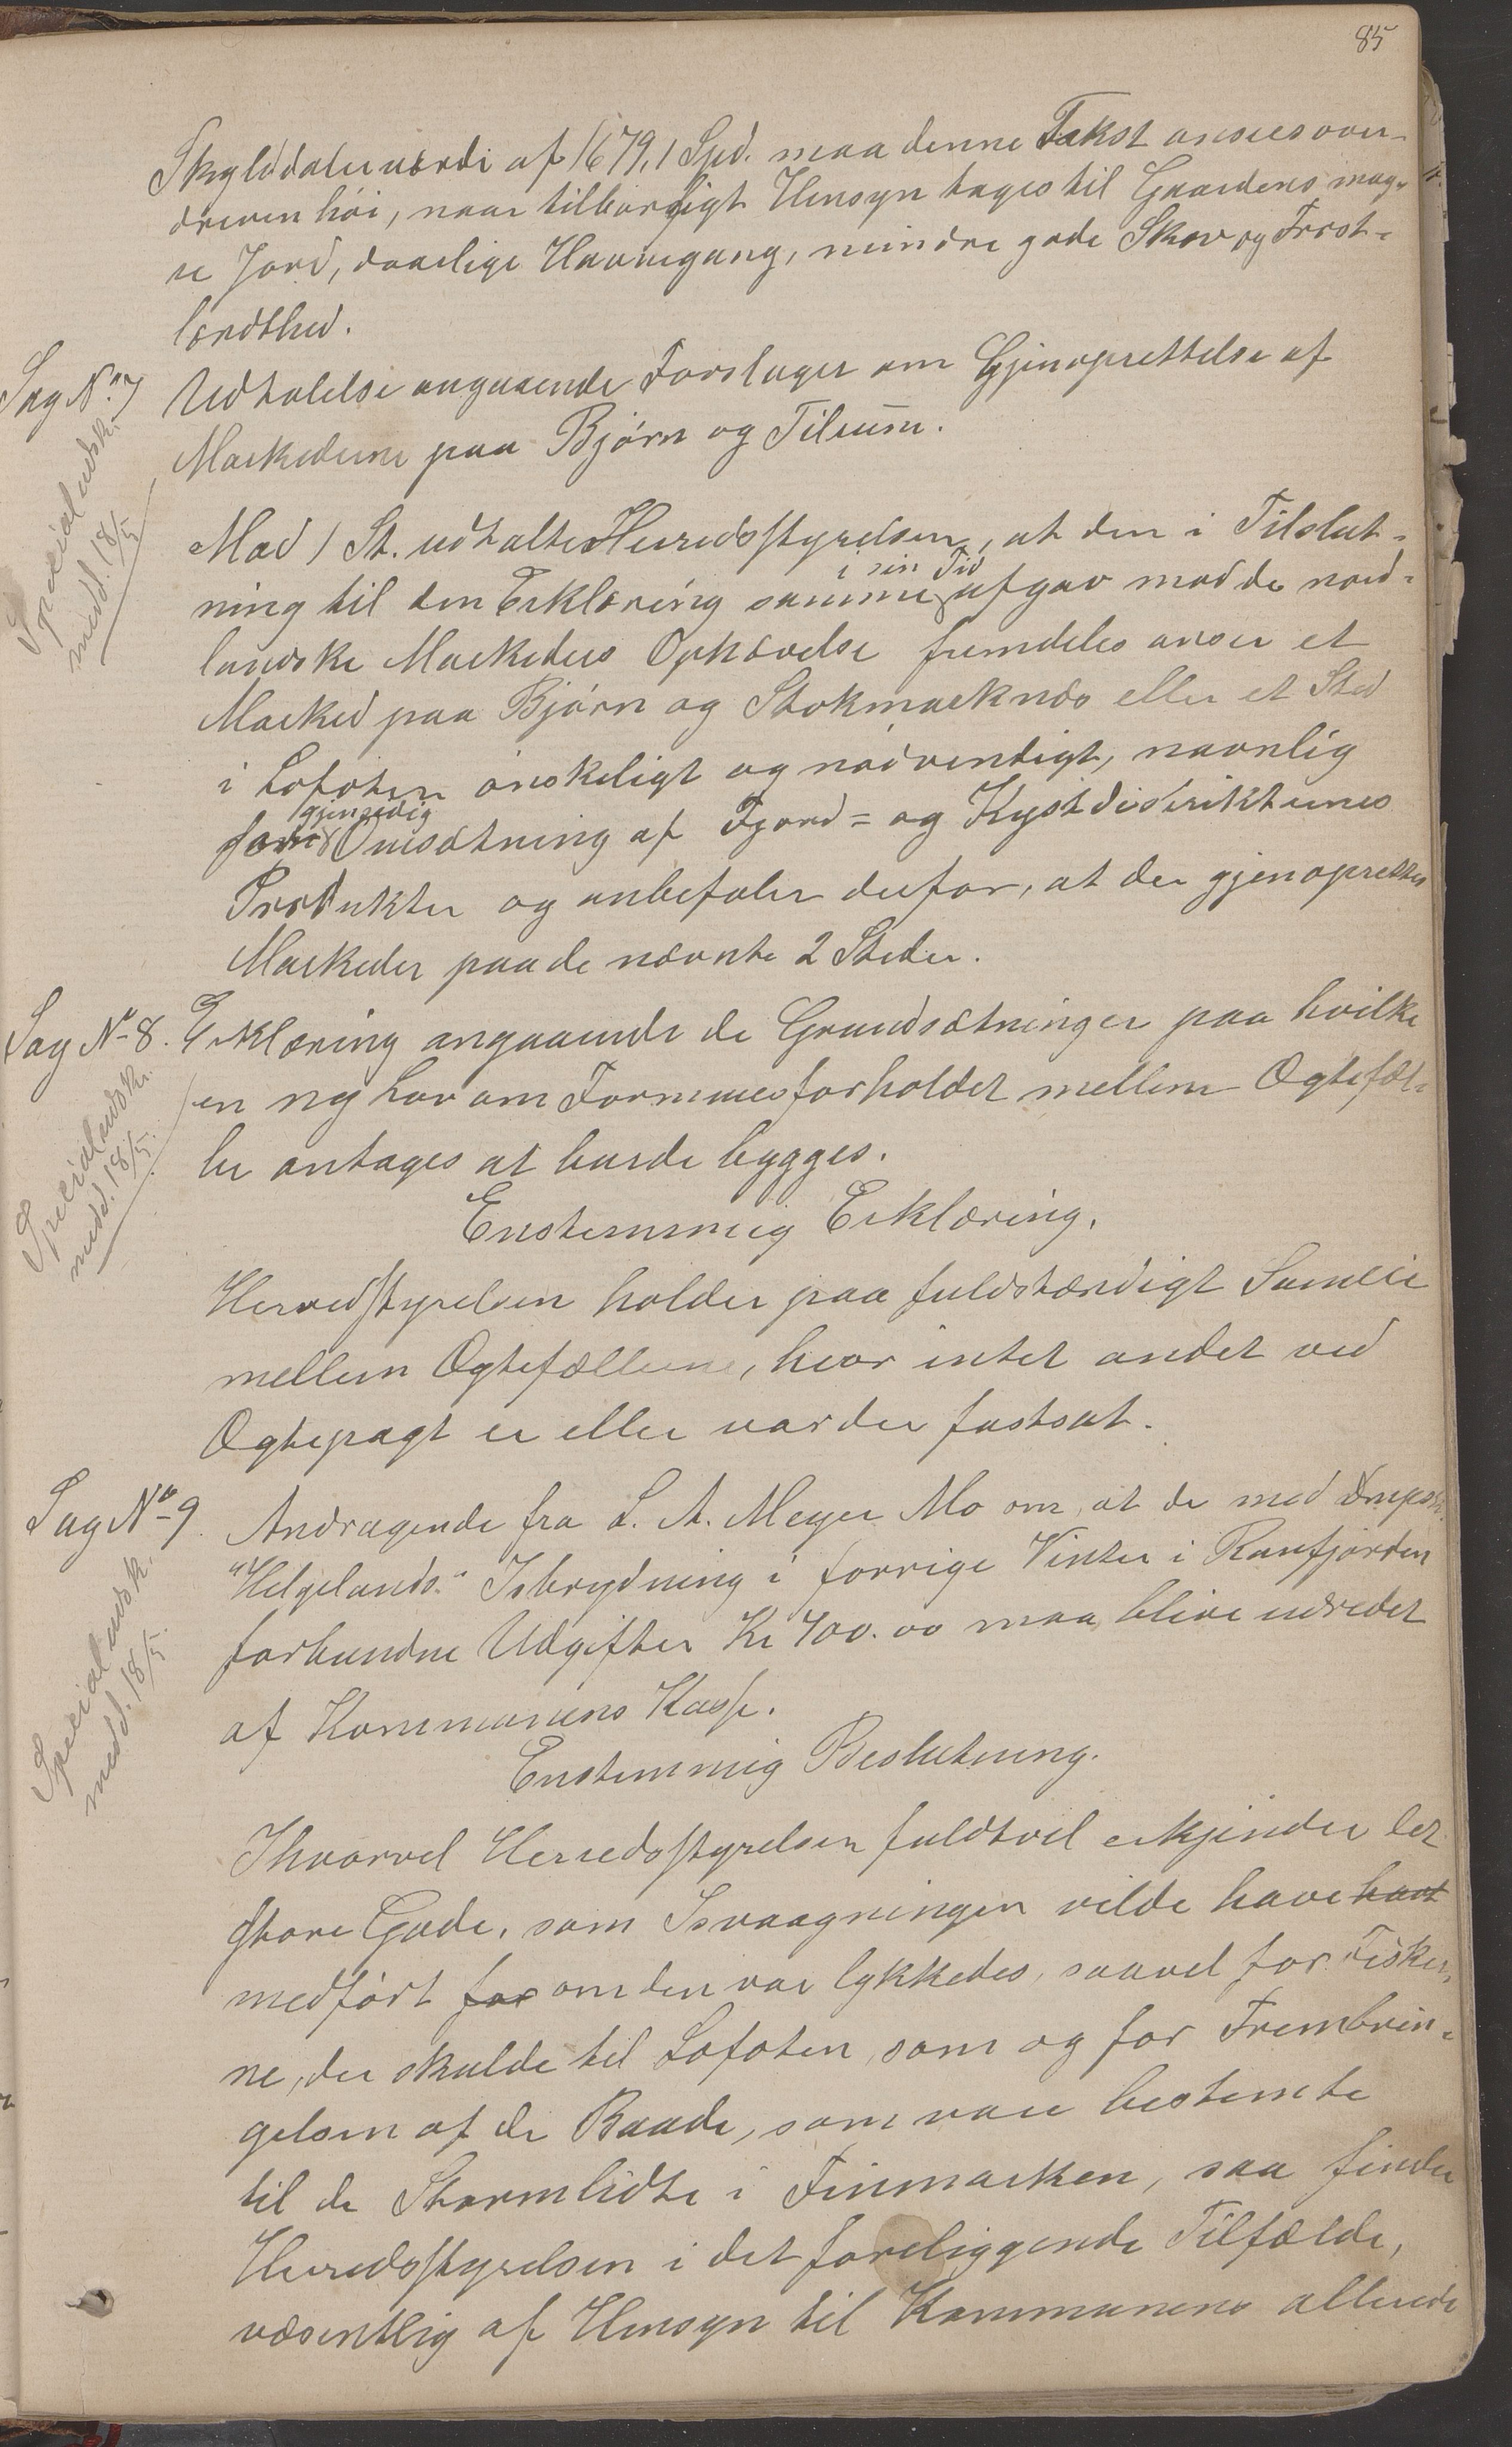 85
Skylddalerværdi af 1679,1 Spd. maa denne Takst ansees over-
dreven høi, naar tilbørligt Hensyn tages til Gaardens mag-
re Jord, daarlige Havnegang, mindre gode Skov og Frost-
lændthed.
Sag No 7
Udtalelse angaaende Forslaget om Gjenoprettelse af
Markederne paa Bjørn og Tilrum.
Specialudsk.
medd. 18/5
Mod 1 St. udtalte Herredsstyrelsen, at den i Tilslut-
i sin Tid
ning til den Erklæring samme afgav mod de nord-
landske Markeders Ophævelse fremdeles anser et
Marked paa Bjørn og Stokmarknæs eller et Sted
i Lofoten ønskeligt og nødvendigt, navnlig
gjensidig
for Omsætning af Fjord- og Kystdistrikternes
Produkter og anbefaler derfor, at der gjenoprettes
Markeder paa de nævnte 2 Steder.
Sag No 8.
Erklæring angaaende de Grundsætninger paa hvilke
en ny Lov om Formuesforholdet mellem Ægtefæl-
ler antages at burde bygges.
Specialudsk.
medd. 18/5.
Enstemmig Erklæring.
Herredsstyrelsen holder paa fuldstændigt Sameie
mellem Ægtefællerne, hvor intet andet ved
Ægtepagt er eller vorder fastsat.
Sag No 9.
Andragende fra L. A. Meyer Mo om, at de med Dmpsk.
"Helgelands" Isbrydning i forrige Vinter i Ranfjorden
forbundne Udgifter Kr 700.00 maa blive udredet
af Kommunens Kasse.
Specialudsk.
medd. 18/5.
Enstemmig Beslutning.
Ihvorvel Herredsstyrelsen fuldtvel erkjender det
store Gode, som Isvaagningen vilde have havt
medført for om den var lykkedes, saavel for Fisker-
ne, der skulde til Lofoten, som og for Frembrin-
gelsen af de Baade, som vare bestemte
til de Stormlidte i Finmarken, saa finder
Herredsstyrelsen i det foreliggende Tilfælde,
væsentlig af Hensyn til Kommunens allerede